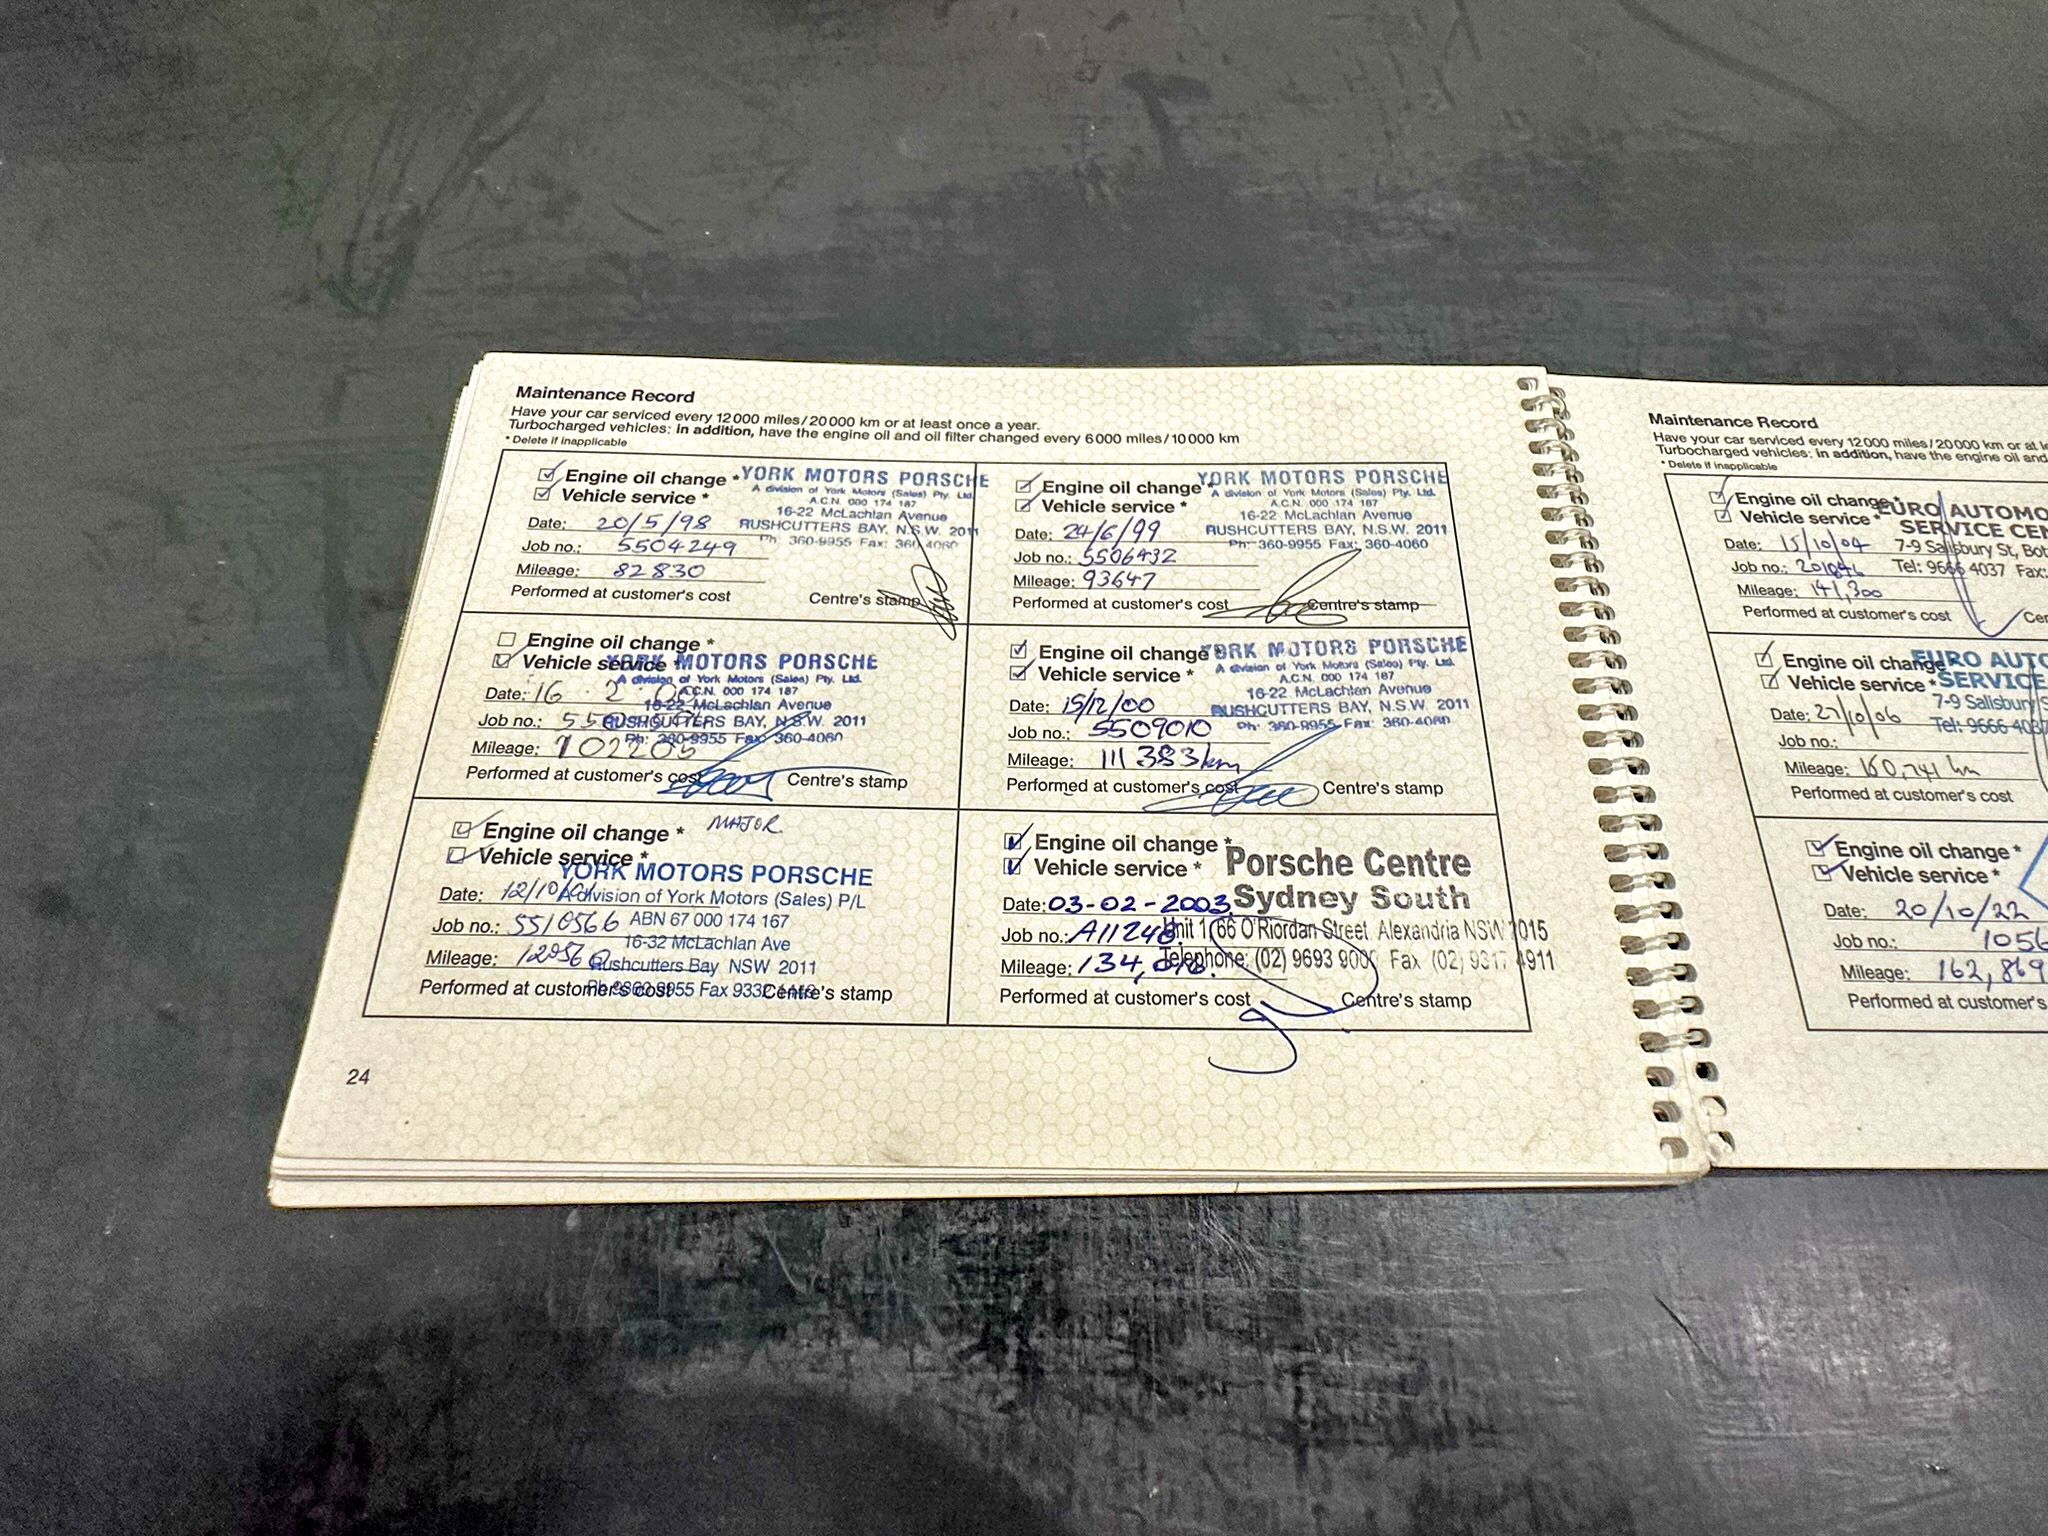 Maintenance Record
Have your car serviced every 12 000 miles/20 000 km or at least once a year.
Turbocharged vehicles: in addition, have the engine oil and oil filter changed every 6 000 miles/10 000 km
* Delete if inapplicable
Engine oil change *
Vehicle service *
YORK MOTORS PORSCHE
A division of York Motors (Sales) Pty. Ltd.
A.C.N. 000 174 187
16-22 McLachlan Avenue
RUSHCUTTERS BAY, N.S.W. 2011
Ph: 360-9955 Fax: 360-4060
Date: 20/5/98
Job no.: 5504249
Mileage: 82830
Performed at customer's cost
Centre's stamp
Engine oil change *
Vehicle service *
YORK MOTORS PORSCHE
A division of York Motors (Sales) Pty. Ltd.
A.C.N. 000 174 187
16-22 McLachlan Avenue
RUSHCUTTERS BAY, N.S.W. 2011
Ph: 360-9955 Fax: 360-4060
Date: 24/6/99
Job no.: 5506432
Mileage: 93647
Performed at customer's cost
Centre's stamp
Engine oil change *
Vehicle service *
YORK MOTORS PORSCHE
A division of York Motors (Sales) Pty. Ltd.
A.C.N. 000 174 187
16-22 McLachlan Avenue
RUSHCUTTERS BAY, N.S.W. 2011
Ph: 360-9955 Fax: 360-4060
Date: 16 . 2 .
Job no.:
Mileage: 102205
Performed at customer's cost
Centre's stamp
Engine oil change *
Vehicle service *
YORK MOTORS PORSCHE
A division of York Motors (Sales) Pty. Ltd.
A.C.N. 000 174 187
16-22 McLachlan Avenue
RUSHCUTTERS BAY, N.S.W. 2011
Ph: 360-9955 Fax: 360-4060
Date: 15/12/00
Job no.: 5509010
Mileage: 111383km
Performed at customer's cost
Centre's stamp
Engine oil change * MAJOR
Vehicle service *
YORK MOTORS PORSCHE
A division of York Motors (Sales) P/L
ABN 67 000 174 167
16-32 McLachlan Ave
Rushcutters Bay NSW 2011
Ph 9360 9955 Fax
Date: 12/10/01
Job no.: 5510566
Mileage:
Performed at customer's cost
Centre's stamp
Engine oil change *
Vehicle service *
Porsche Centre
Sydney South
Unit 1, 66 O'Riordan Street Alexandria NSW 2015
Telephone: (02) 9693 9000 Fax (02) 9317 4911
Date: 03-02-2003
Job no.: A11248
Mileage:
Performed at customer's cost
Centre's stamp
24
Maintenance Record
Have your car serviced every 12 000 miles/20 000 km or at
Turbocharged vehicles: in addition, have the engine oil and
* Delete if inapplicable
Engine oil change *
Vehicle service *
EURO AUTOMO
SERVICE CEN
7-9 Salisbury St, Bot
Tel: 9666 4037 Fax:
Date: 15/10/04
Job no.:
Mileage: 141,300
Performed at customer's cost
Cen
Engine oil change *
Vehicle service *
EURO AUTO
SERVICE
7-9 Salisbury S
Tel: 9666 4037
Date: 27/10/06
Job no.:
Mileage: 160,741 km
Performed at customer's cost
Engine oil change *
Vehicle service *
Date: 20/10/22
Job no.: 1056
Mileage: 162,869
Performed at customer's